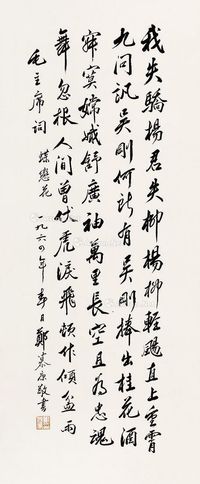 我失驕楊君失柳楊柳輕颺直上重霄
九問訊吳剛何所有吳剛捧出桂花酒
寂寞嫦娥舒廣袖萬里長空且為忠魂
舞忽报人間曾伏虎淚飛頓作傾盆雨
毛主席詞 蝶戀花 一九六四年 春日鄭慕康敬書